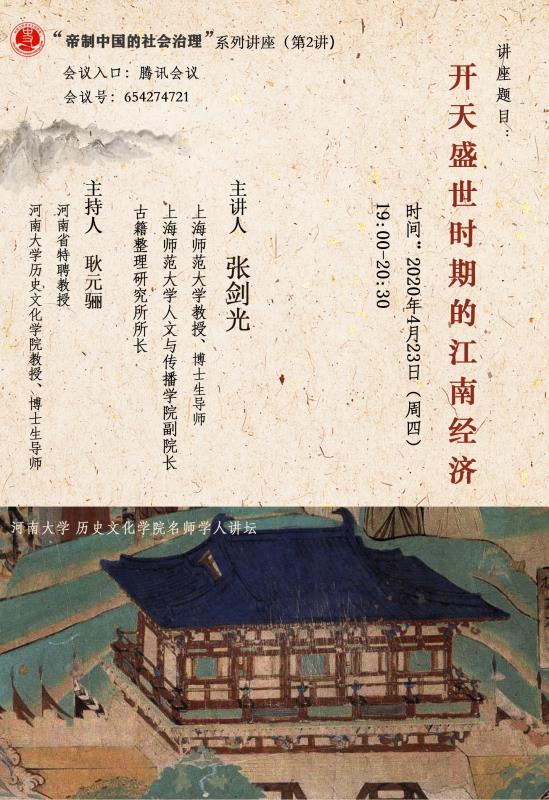 “帝制中国的社会治理”系列讲座（第2讲）
会议入口：腾讯会议
会议号：654274721
讲座题目：
开天盛世时期的江南经济
时间：2020年4月23日（周四）
19:00-20:30
主讲人 张剑光
上海师范大学教授、博士生导师
上海师范大学人文与传播学院副院长
古籍整理研究所所长
主持人 耿元骊
河南省特聘教授
河南大学历史文化学院教授、博士生导师
河南大学 历史文化学院名师学人讲坛